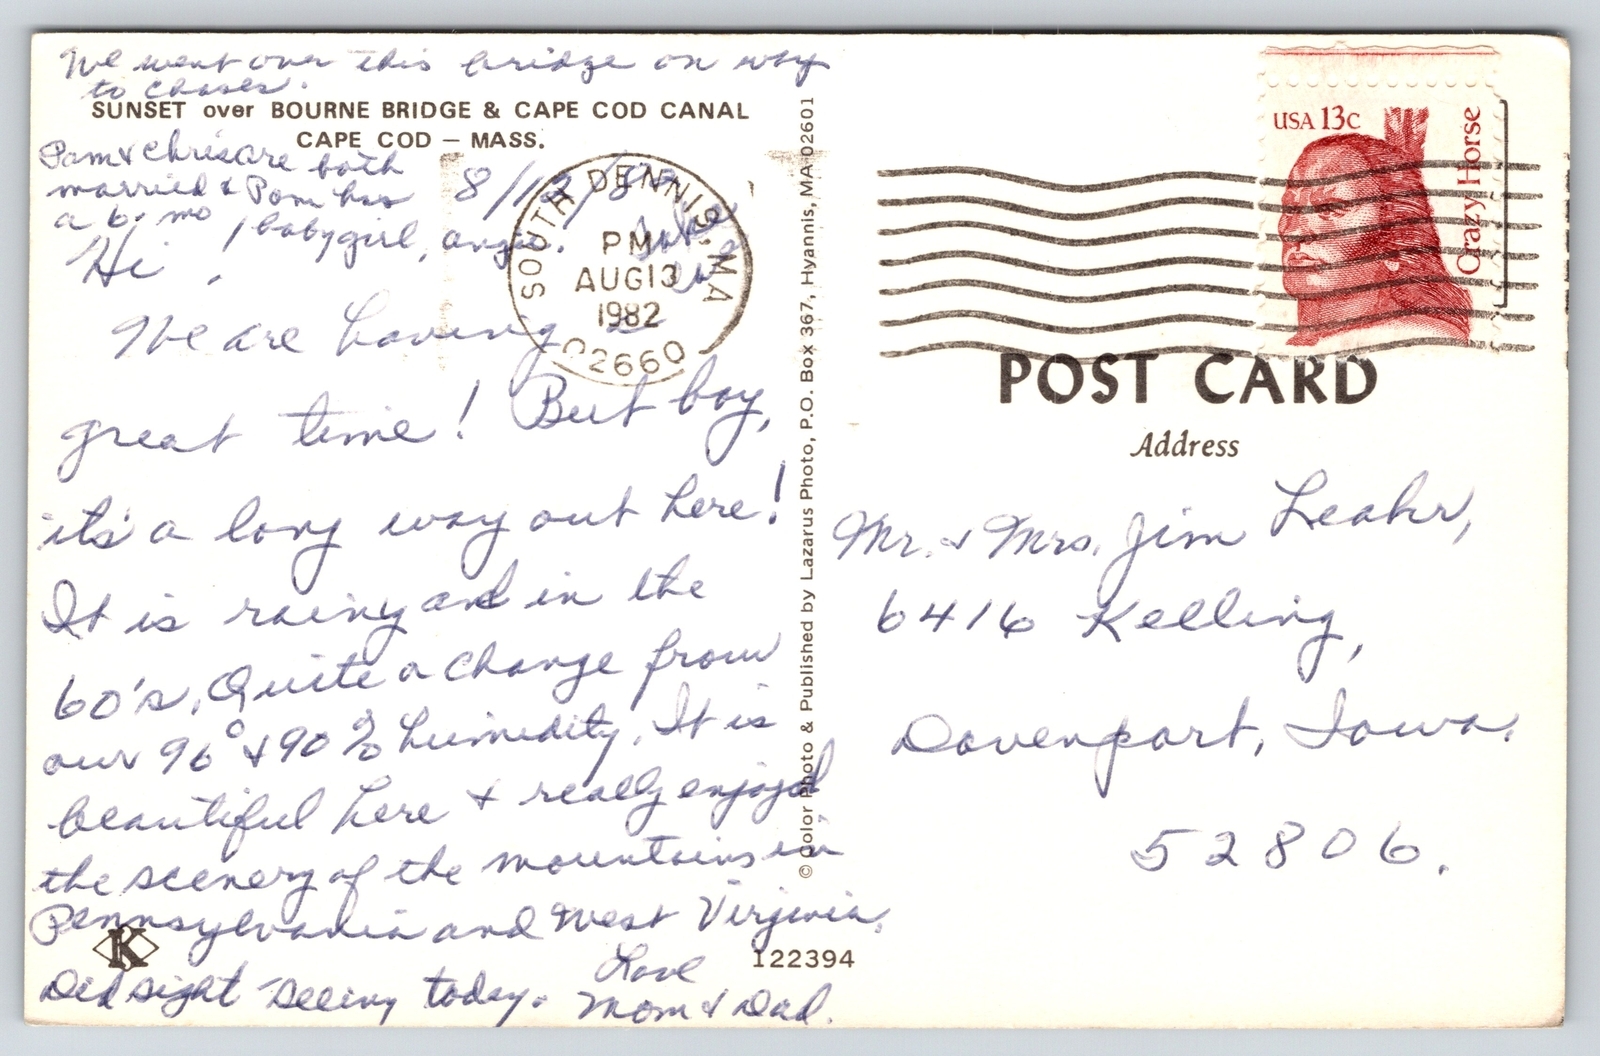 We went over this bridge on way
to Chases.
SUNSET over BOURNE BRIDGE & CAPE COD CANAL
CAPE COD – MASS.
Pam & Chris are both
married & Pam has
a 6 mo babygirl, Angie.
8/12/82
Hi,
We are having
great time! But boy,
it's a long way out here!
It is rainy and in the
60's, Quite a change from
our 96° & 90% humidity. It is
beautiful here & really enjoyed
the scenery of the mountains in
Pennsylvania and West Virginia.
Did sight seeing today.
Love
Mom & Dad.
K
SOUTH DENNIS, MA
PM
AUG 13
1982
02660
© Color Photo & Published by Lazarus Photo, P.O. Box 367, Hyannis, MA 02601
122394
USA 13c
Crazy Horse
POST CARD
Address
Mr. & Mrs. Jim Leahr,
6416 Kelling,
Davenport, Iowa.
52806.